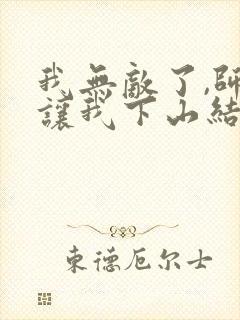 我無敵了,師
讓我下山結
東德厄尔士